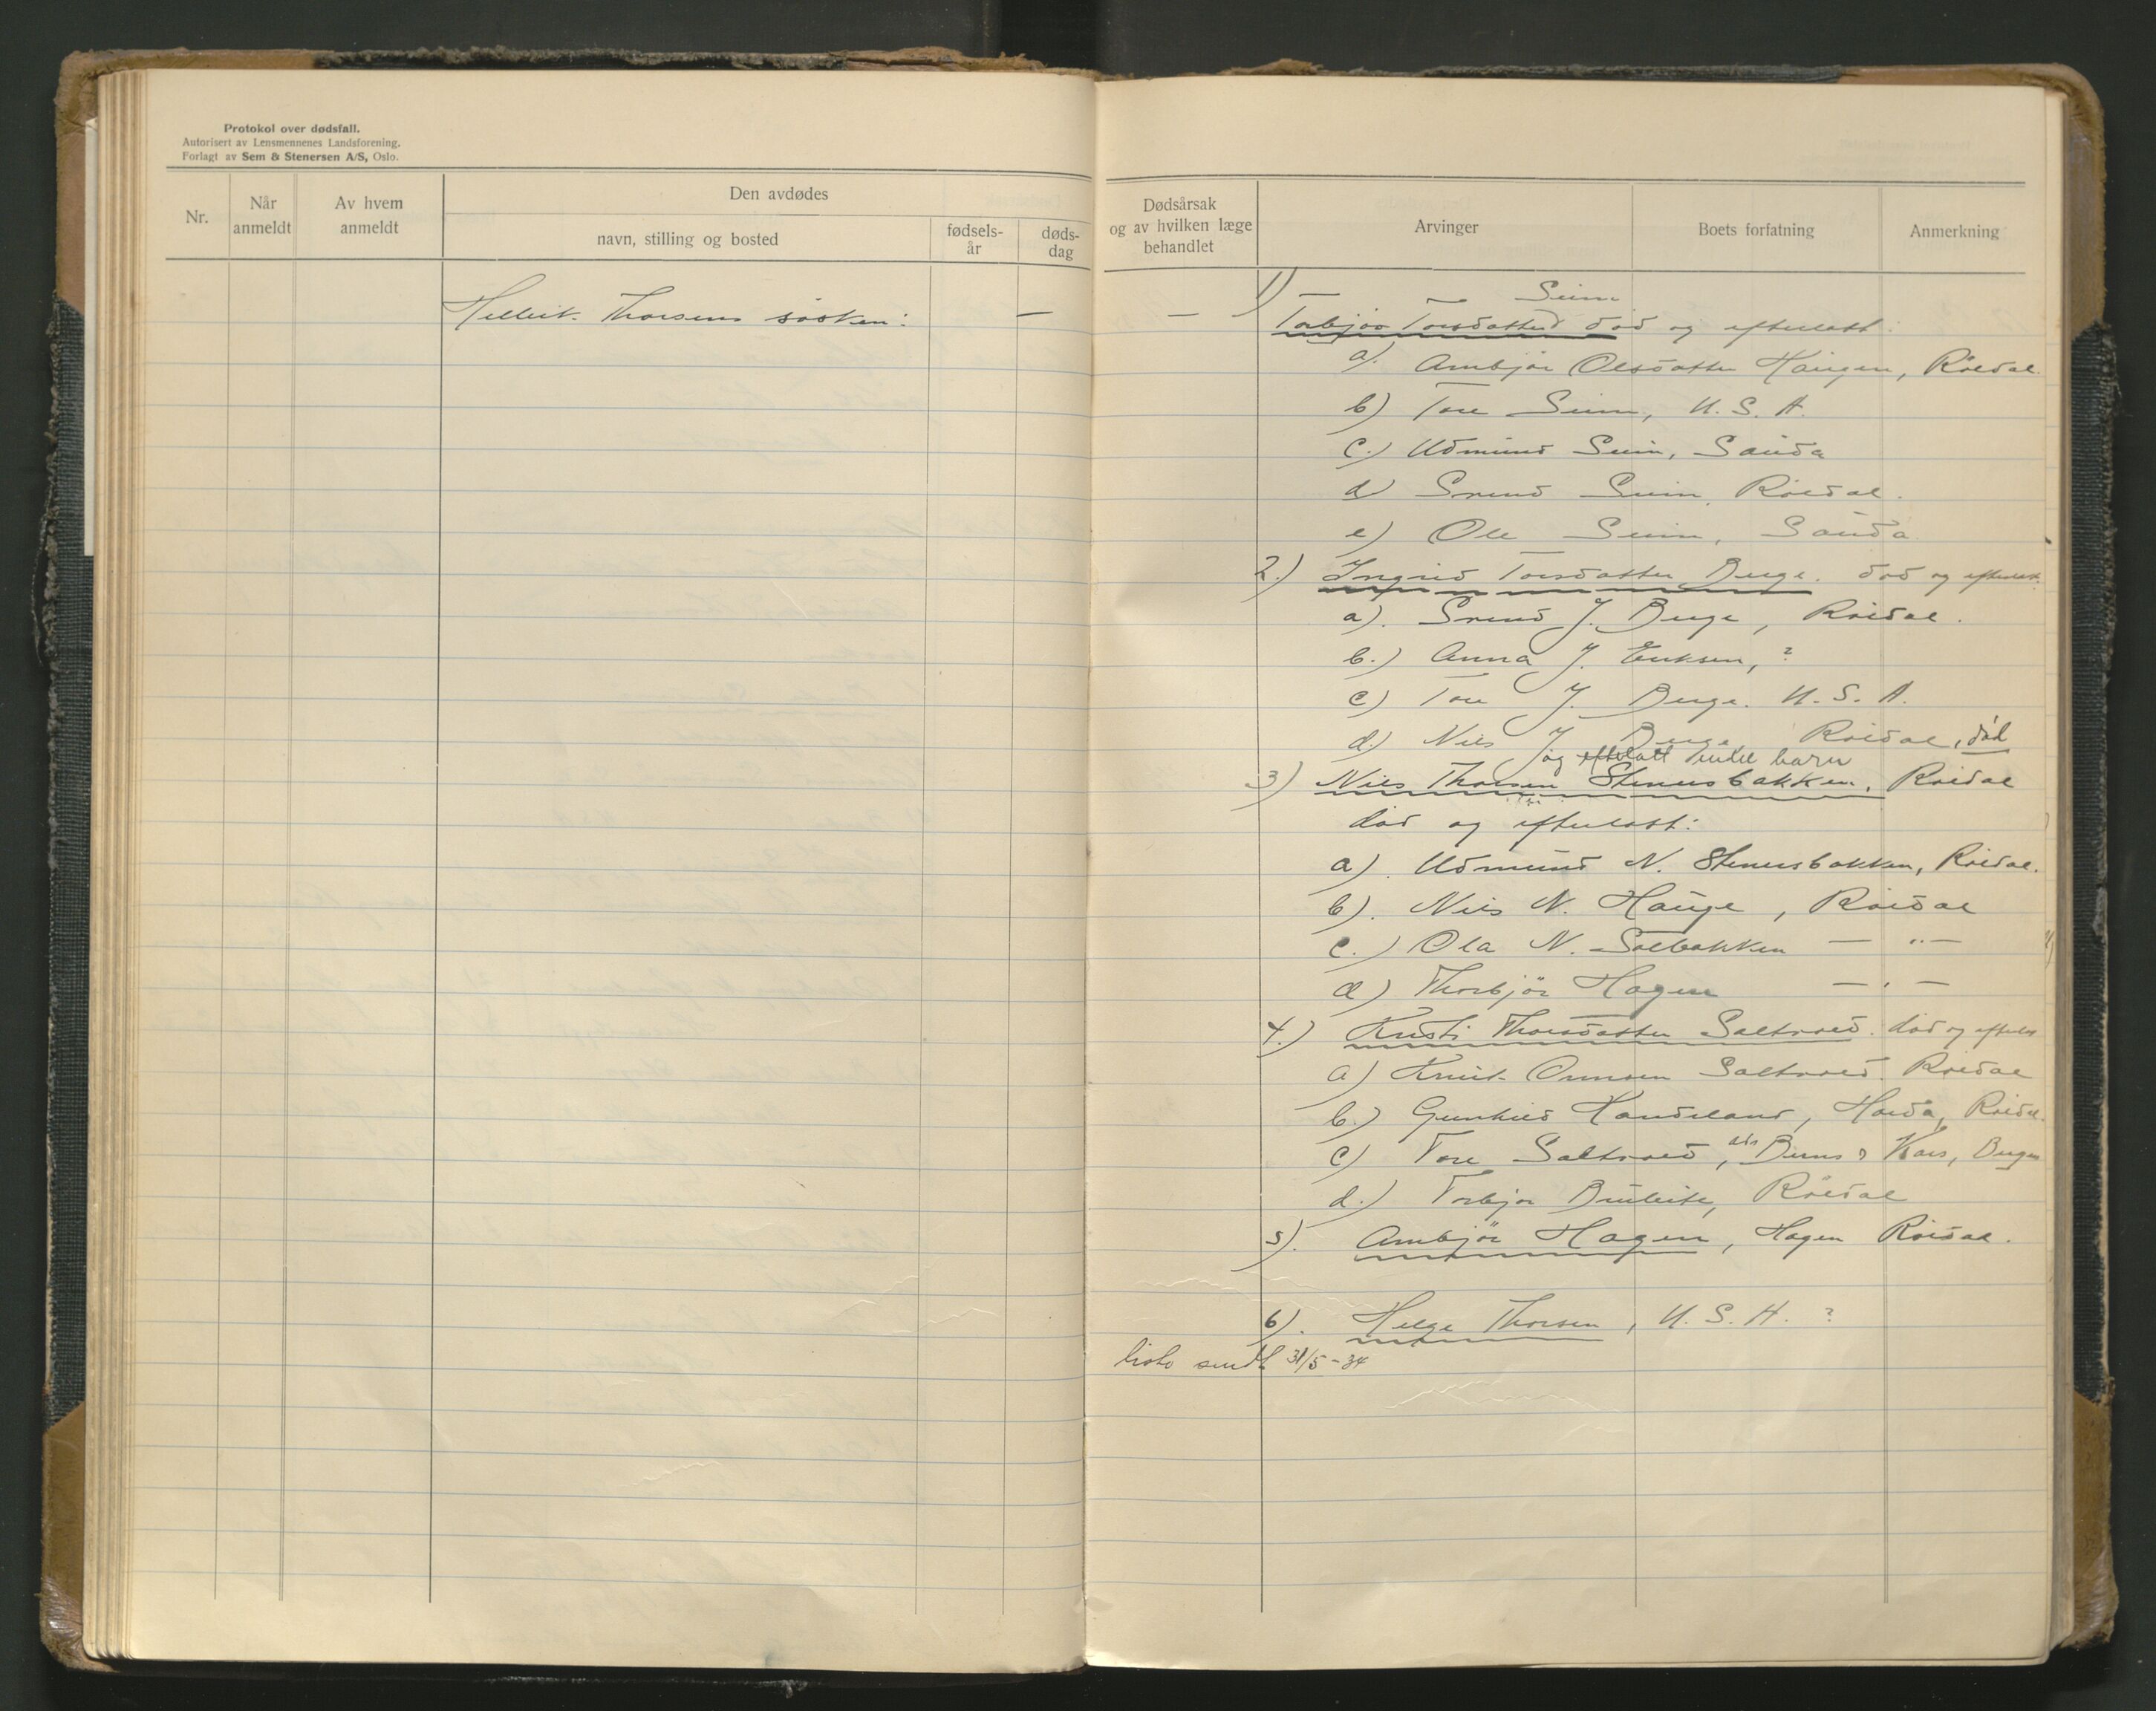 Protokol over dødsfall.
Autorisert av Lensmennenes Landsforening.
Forlagt av Sem & Stenersen A/S, Oslo.
Nr.
Når anmeldt
Av hvem anmeldt
Den avdødes
navn, stilling og bosted
fødsels-år
døds-dag
Dødsårsak og av hvilken læge behandlet
Arvinger
Boets forfatning
Anmerkning
Helleik Thorsens søsken: — —
1) Torbjør Torsdatter Seim død og efterlatt
a). Ambjør Olsdatter Haugen, Röldal.
b) Tore Seim, U. S. A.
c.) Udmund Seim, Sauda
d) Svend Seim, Röldal.
e) Ole Seim, Sauda
2.) Ingrid Torsdatter Berge. død og efterlat.
a). Svend J. Berge, Röldal.
b.) Anna J. Eriksen, ?
c) Tore J. Berge. U. S. A.
d.) Nils J. Berge Röldal, död
og efterlatt intet barn
3) Nils Thorsen Steinersbakken, Röldal
död og efterlatt:
a). Udmund N. Steinersbakken, Röldal.
b). Nils N. Hauge, Röldal
c.) Ola N. Solbakken — " —
d) Thorbjör Hagen — " —
4.) Kristi Thorsdatter Saltvold. död og efterlat
a) Knut Onnsen Saltvold. Röldal
b.) Gunhild Handeland, Horda, Röldal.
c) Tore Saltvold, adr. Berns & Kars, Bergen
d.) Torbjør Bruleite, Röldal
5). Ambjör Hagen, Hagen Röldal.
6). Helge Thorsen, U. S. A. ?
liste sendt 31/5-34